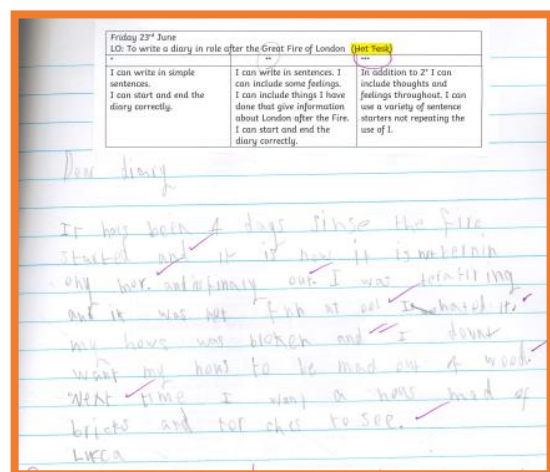 Friday 23rd June
LO: To write a diary in role after the Great Fire of London (Hot Task)
* ** ***
I can write in simple sentences.
I can start and end the diary correctly.
I can write in sentences. I can include some feelings.
I can include things I have done that give information about London after the Fire.
I can start and end the diary correctly.
In addition to 2* I can include thoughts and feelings throughout. I can use a variety of sentence starters not repeating the use of I.
Dear diary
It has been 4 days sinse the fire
started and it is now it is not
mor. out. I was
and it was not fun at I hated it.
my hows was broken and I dount
want my hous to be mad out of wood.
Next time I want a hous mad of
bricks and tor ches to see.
Lucca